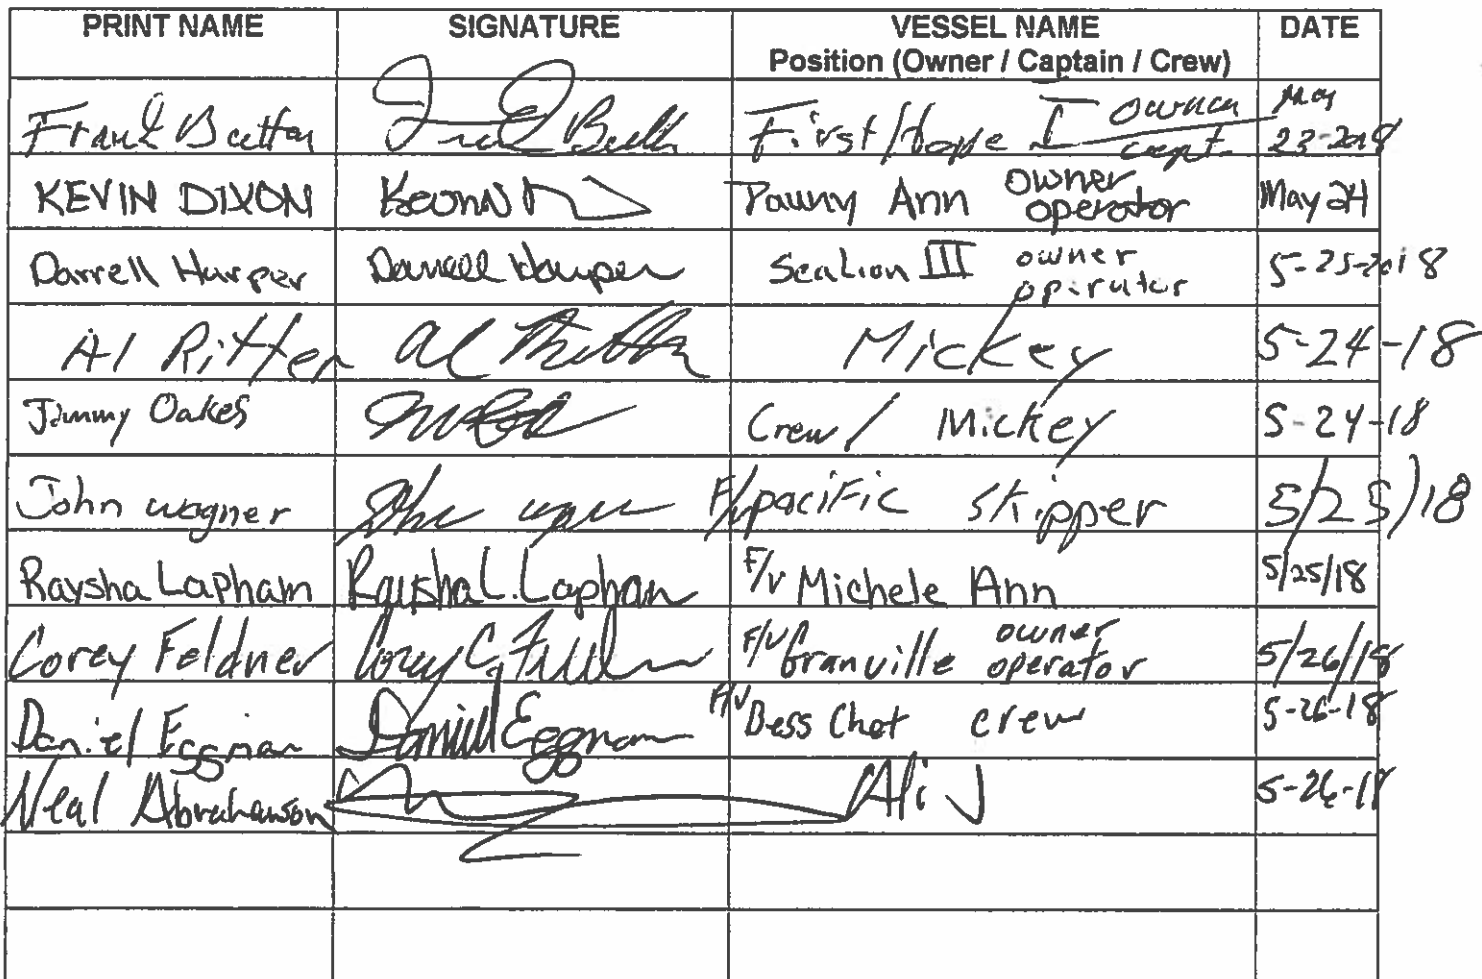 PRINT NAME SIGNATURE VESSEL NAME DATE
Position (Owner / Captain / Crew)
Frank Button First Hope I owner May
capt. 23-2018
KEVIN DIXON Kevin D Pawny Ann owner May 24
operator
Darrell Harper Darrell Harper SeaLion III owner 5-25-2018
operator
Al Ritter Al Ritter Mickey 5-24-18
Jimmy Oakes Crew / Mickey 5-24-18
John Wagner F/V pacific skipper 5/25/18
Raysha Lapham Raysha L. Lapham F/V Michele Ann 5/25/18
Corey Feldner Corey C. F/V Granville owner 5/26/18
operator
Daniel Eggman Daniel Eggman F/V Bess Chet crew 5-26-18
Neal Abrahamson Ali J 5-26-18